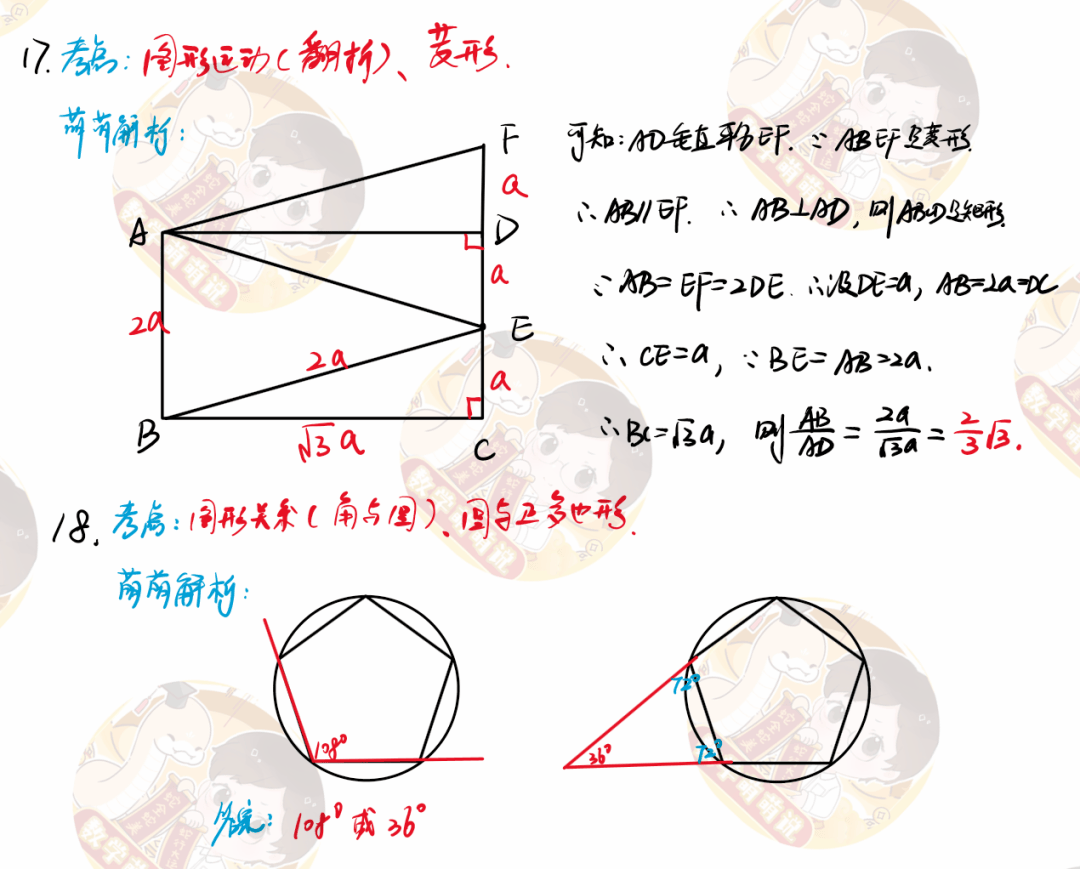 17. 考点: 图形运动(翻折)、菱形.
萌萌解析:
F
a
A
D
a
2a
E
2a
a
B
√3 a
C
可知: AD垂直平分EF. ∵ ABEF是菱形
∴ AB∥EF. ∴ AB⊥AD, 则ABCD是矩形
∵ AB=EF=2DE. ∴设DE=a, AB=2a=DC
∴ CE=a, ∵ BE=AB=2a.
∴BC=√3a, 则 AB/AD = 2a/√3a = 2/3 √3.
18. 考点: 图形关系(角与圆)、圆与正多边形.
萌萌解析:
108°
72°
36°
72°
答案: 108° 或 36°